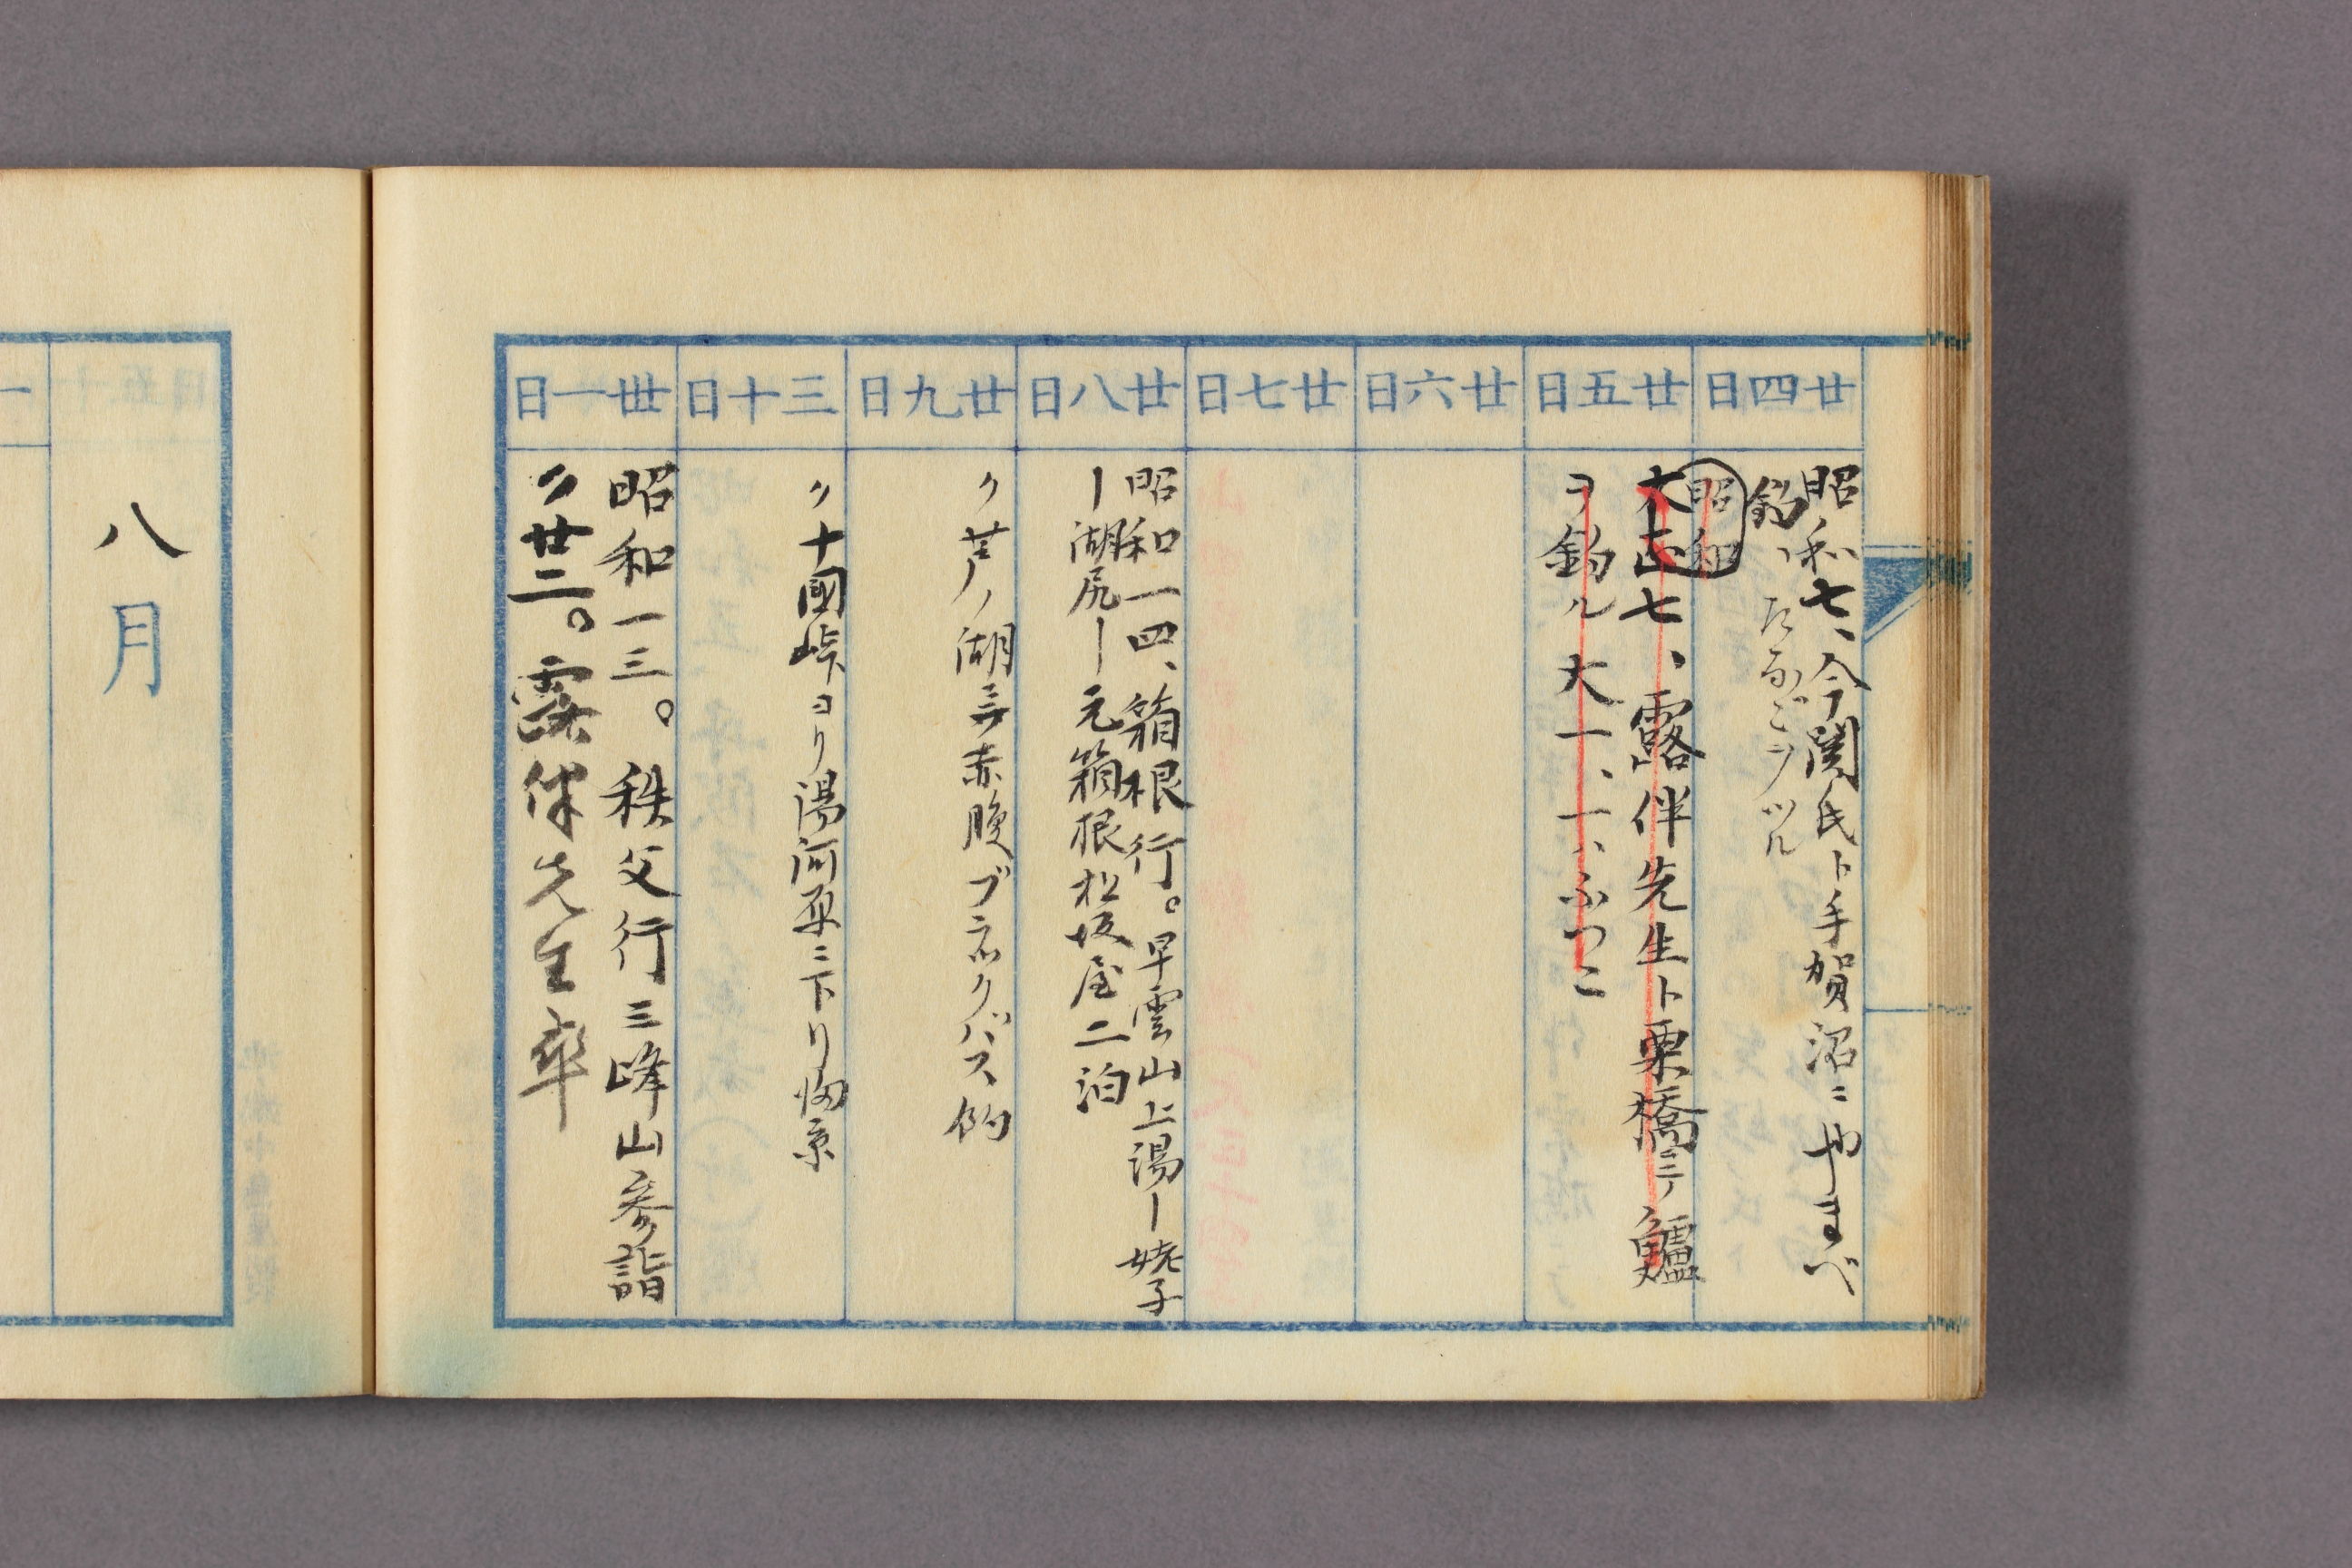 廿四日
昭和七、今関氏ト手賀沼ニやまべ
釣、たなごヲツル
廿五日
昭和
大正七、露伴先生ト栗橋ニテ鱸
ヲ釣ル大一、一ハふつこ
廿六日
廿七日
廿八日
昭和一四、箱根行。早雲山上湯ー姥子
ー湖尻ー元箱根松坂屋二泊
廿九日
〃芦ノ湖ニテ赤腹ブラックバス釣
三十日
〃十國峠ヨリ湯河原ニ下リ帰京
丗一日
昭和一三。秩父行三峰山参詣
〃廿二。露伴先生卒
八月
一